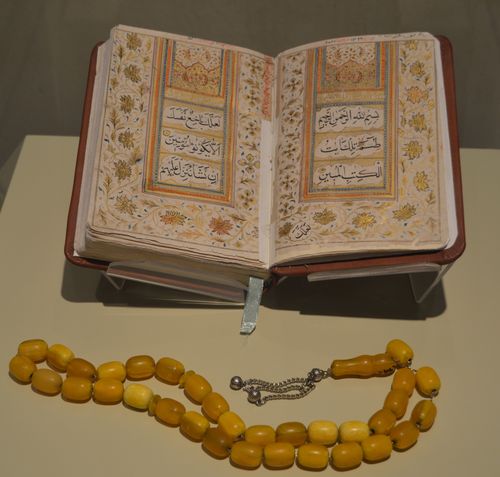 بسم الله الرحمن الرحيم
طسم تلك ايت
الكتب المبين
لعلك
لعلك باخع نفسك
الا يكونوا مؤمنين
ان نشأ ننزل عليهم